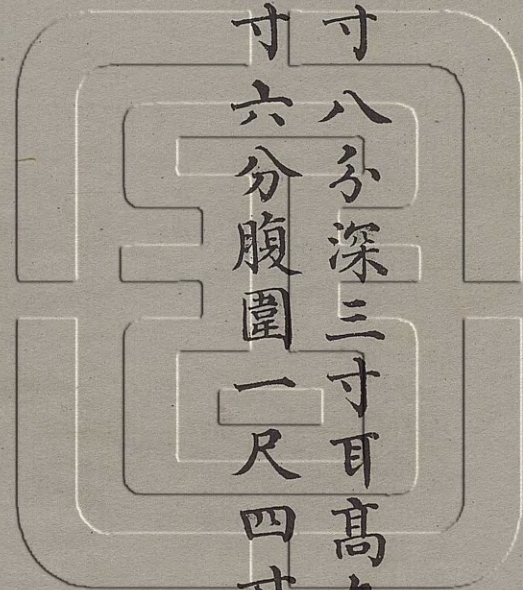 寸八分深三寸耳髙
寸六分腹圍一尺四寸